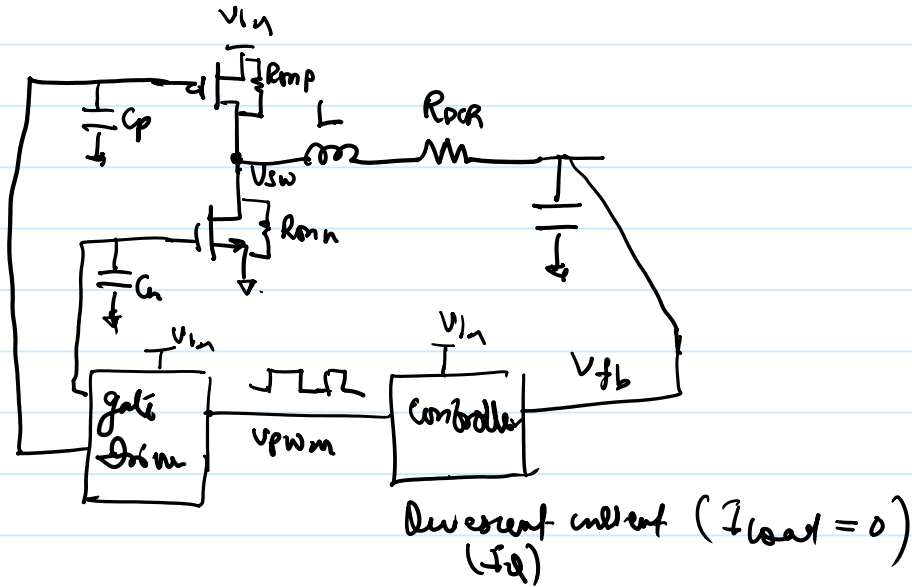 Vin
Ronp
Cp
L
RDCR
Vsw
Ronn
Cn
Vin
Vin
gate
Drive
VPWM
Controller
Vfb
Quiescent current (Iload = 0)
(IQ)